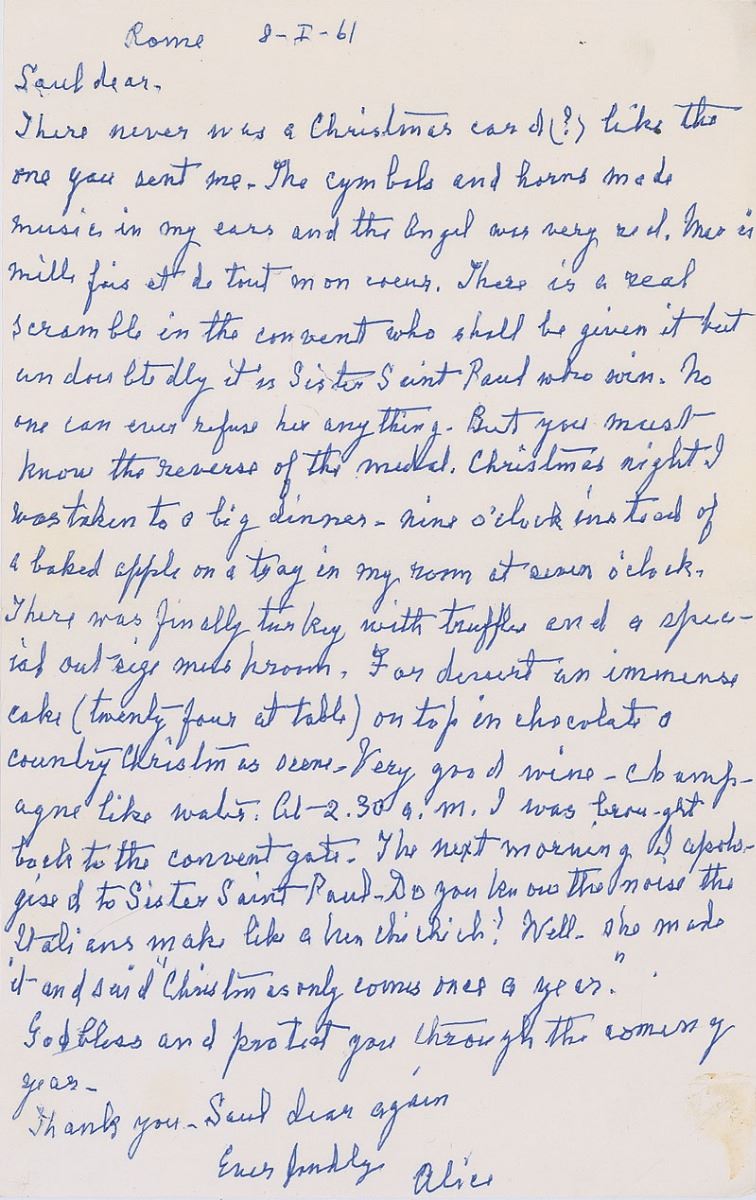 Rome 8-I-61
Saul dear.
There never was a Christmas card (?) like the
one you sent me. The cymbals and horns made
music in my ears and the Angel was very real. Merci
mille fois et de tout mon coeur. There is a real
scramble in the convent who shall be given it but
undoubtedly it's Sister Saint Paul who win. No
one can ever refuse her anything. But you must
know the reverse of the medal. Christmas night I
was taken to a big dinner - nine o'clock instead of
a baked apple on a tray in my room at seven o'clock.
There was finally turkey with truffles and a spec-
ial outsize mushroom. For desert an immense
cake (twenty four at table) on top in chocolate a
country Christmas scene - Very good wine - champ-
agne like water. At 2.30 a.m. I was brought
back to the convent gate. The next morning I apolo-
gised to Sister Saint Paul - Do you know the noise the
Italians make like a hen chichich? Well - she made
it and said "Christmas only comes once a year."
God bless and protect you through the coming
year -
Thank you - Saul dear again
Ever fondly
Alice